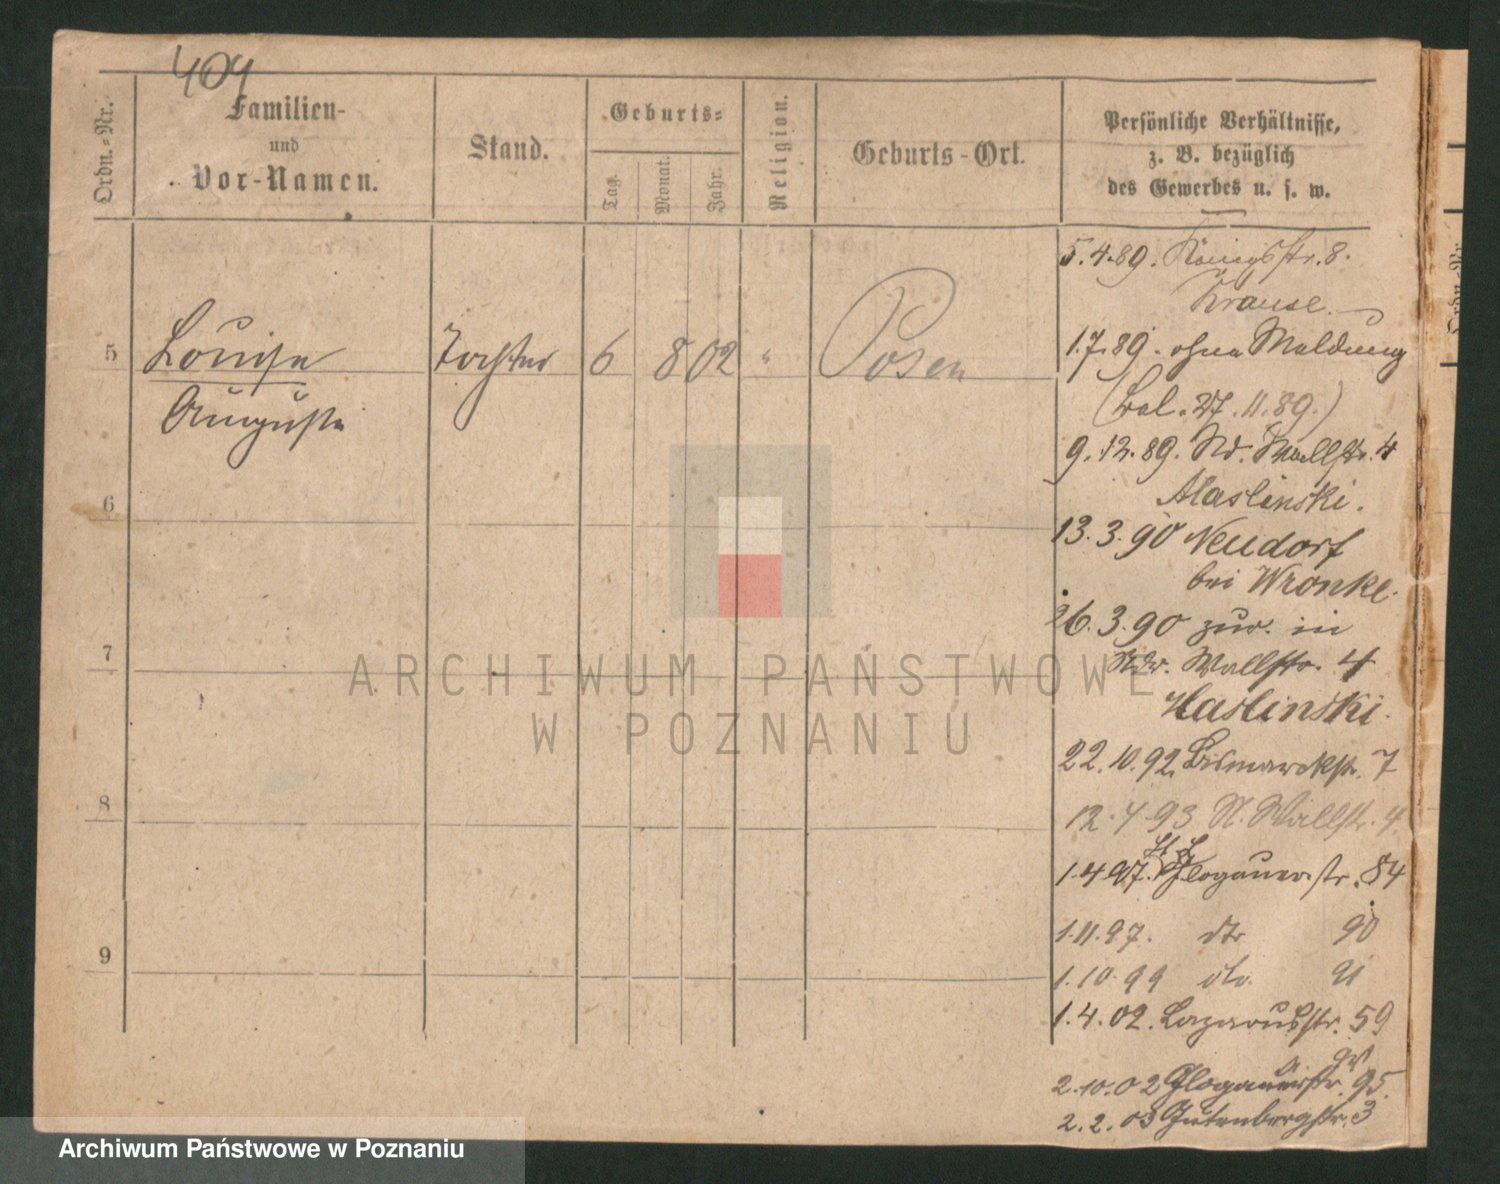 409
Ordn.-Nr.
Familien-
und
Vor-Namen.
Stand.
Geburts-
Tag.
Monat.
Jahr.
Religion.
Geburts-Ort.
Persönliche Verhältnisse,
z. B. bezüglich
des Gewerbes u. s. w.
5 Louise Tochter 6 8 02 " Posen
Auguste
6
7
8
9
5.4.89. Königsstr. 8.
Krause.
1.7.89. ohne Meldung
(Bal. 27.11.89.)
9.12.89. Nd. Wallstr. 4
Haslinski.
13.3.90 Neudorf
bei Wronke.
26.3.90 zur. in
Ndr. Wallstr. 4
Haslinski.
22.10.92. Bismarckstr. 7
12.4.93 N. Wallstr. 4.
1.4.97. St. L. Glogauerstr. 84
1.11.97. dto 90
1.10.99 dto. 91
1.4.02. Lazarusstr. 59
2.10.02 Glogauerstr. 95.
2.2.03 Gutenbergstr. 3
ARCHIWUM PAŃSTWOWE
W POZNANIU
Archiwum Państwowe w Poznaniu